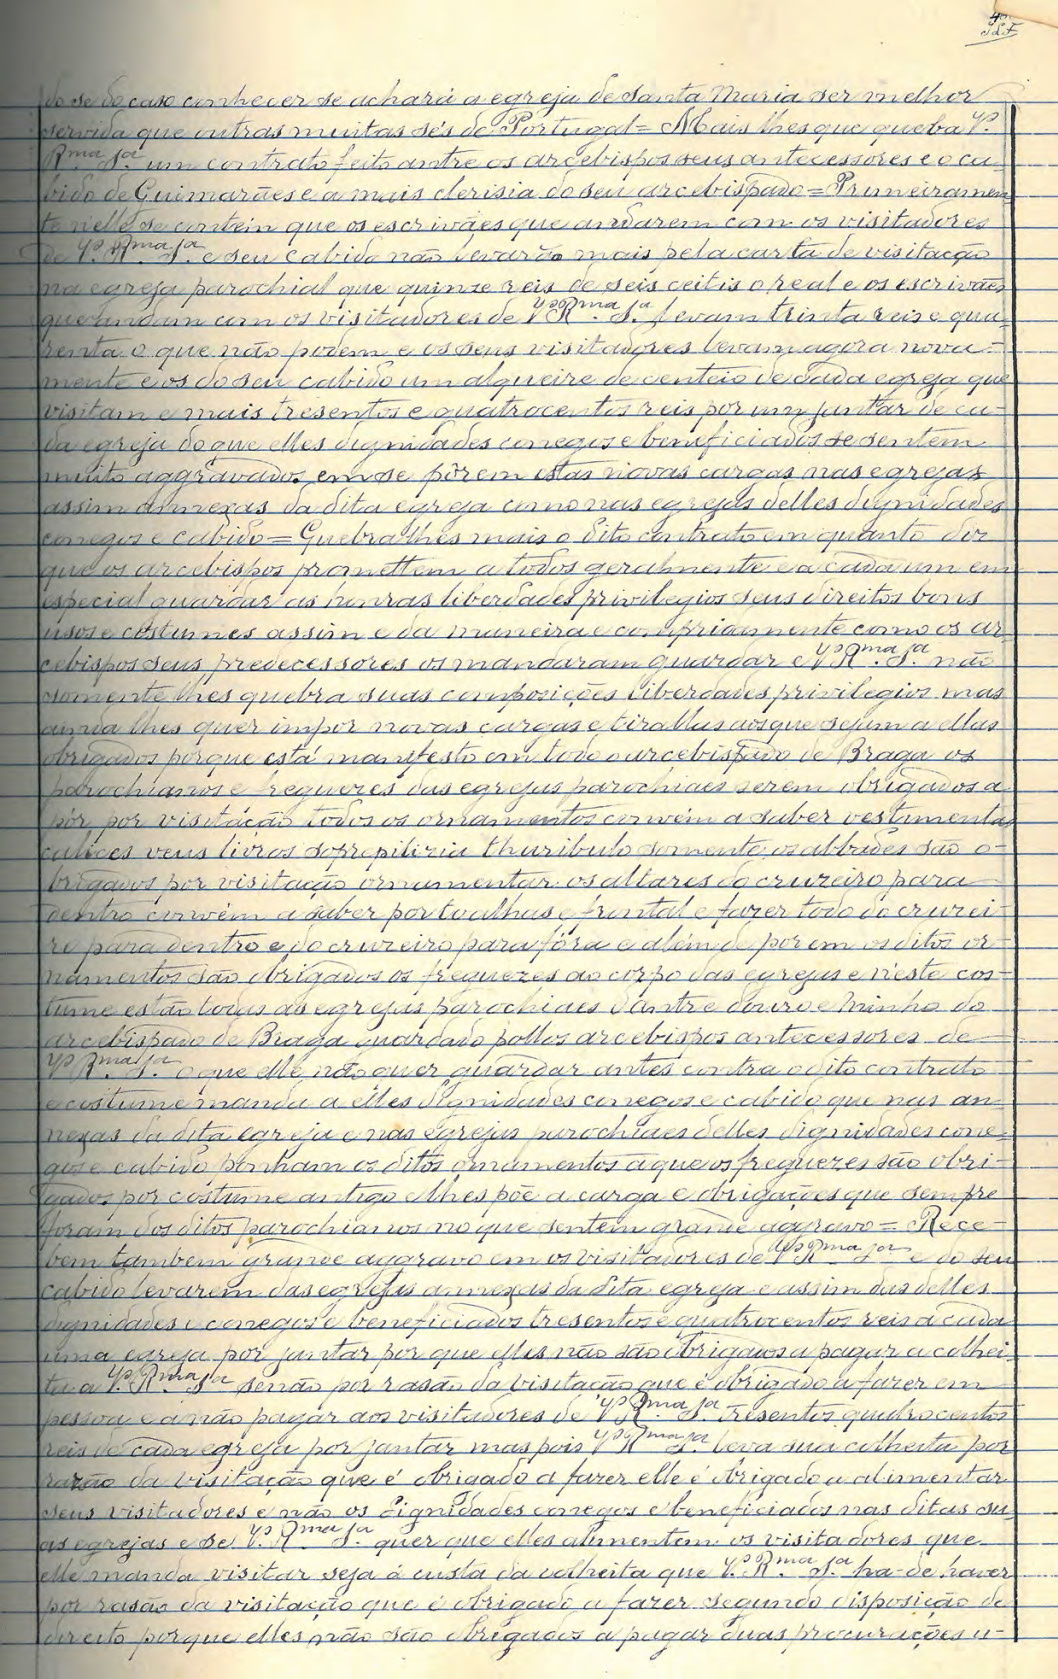 do se do caso conhecer se achará a egreja de Santa Maria ser melhor
servida que outras muitas sés de Portugal = Mais lhes que quebra V.
R.ma S.a um contrato feito antre os arcebispos seus antecessores e o ca-
bido de Guimarães e a mais clerisia do seu arcebispado = Primeiramen
te nelle se contém que os escrivães que andarem com os visitadores
de V. R.ma S.a e seu cabido não levarão mais pela carta de visitação
na egreja parochial que quinze reis de seis ceitis o real e os escrivães
que andam com os visitadores de V. R.ma S.a levam trinta reis e qua-
renta o que não podem e os seus visitadores levam agora nova-
mente e os do seu cabido um alqueire de centeio de cada egreja que
visitam e mais tresentos e quatrocentos reis por um jantar de ca-
da egreja do que elles dignidades conegos e beneficiados se sentem
muito aggravados em se pôrem estas novas cargas nas egrejas
assim annexas da dita egreja como nas egrejas delles dignidades
conegos e cabido = Quebra lhes mais o dito contrato em quanto diz
que os arcebispos promettem a todos geralmente e a cada um em
especial guardar as honras liberdades privilegios seus direitos bons
usos e costumes assim e da maneira e compridamente como os ar-
cebispos seus predecessores os mandaram guardar e V. R.ma S.a não
somente lhes quebra suas composições liberdades privilegios mas
ainda lhes quer impor novas cargas e tirallas aos que sejam a ellas
obrigados porque está manifesto em todo o arcebispado de Braga os
parochianos e freguezes das egrejas parochiaes serem obrigados a
pôr por visitação todos os ornamentos convém a saber vestimentas
calices veus livros sobrepilizia thuribulo somente os abbades são o-
brigados por visitação ornamentar os altares do cruzeiro para
dentro convém a saber por toalhas e frontal e fazer todo do cruzei-
ro para dentro e do cruzeiro para fóra e além de porem os ditos or-
namentos são obrigados os freguezes ao corpo das egrejas e neste cos-
tume estão todas as egrejas parochiaes d'antre douro e Minho do
arcebispado de Braga guardado pollos arcebispos antecessores de
V. R.ma S.a o que elle não quer guardar antes contra o dito contrato
e costume manda a elles dignidades conegos e cabido que nas an-
nexas da dita egreja e nas egrejas parochiaes delles dignidades cone-
gos e cabido ponham os ditos ornamentos a que os freguezes são obri-
gados por costume antigo e lhes põe a carga e obrigações que sempre
foram dos ditos parochianos no que sentem grande aggravo = Rece-
bem tambem grande aggravo em os visitadores de V. R.ma S.a e do seu
cabido levarem das egrejas annexas da dita egreja e assim das delles
dignidades e conegos e beneficiados tresentos e quatrocentos reis a cada
uma egreja por jantar por que elles não são obrigados a pagar a colhei-
ta a V. R.ma S.a senão por rasão da visitação que é obrigado a fazer em
pessoa e a não pagar aos visitadores de V. R.ma S.a tresentos quatrocentos
reis de cada egreja por jantar mas pois V. R.ma S.a leva sua colheita por
razão da visitação que é obrigado a fazer elle é obrigado a alimentar
seus visitadores e não os dignidades conegos e beneficiados nas ditas su-
as egrejas e se V. R.ma S.a quer que elles alimentem os visitadores que
elle manda visitar seja á custa da colheita que V. R.ma S.a ha-de haver
por rasão da visitação que é obrigado a fazer segundo disposição de
direito porque elles não são obrigados a pagar duas procurações u-